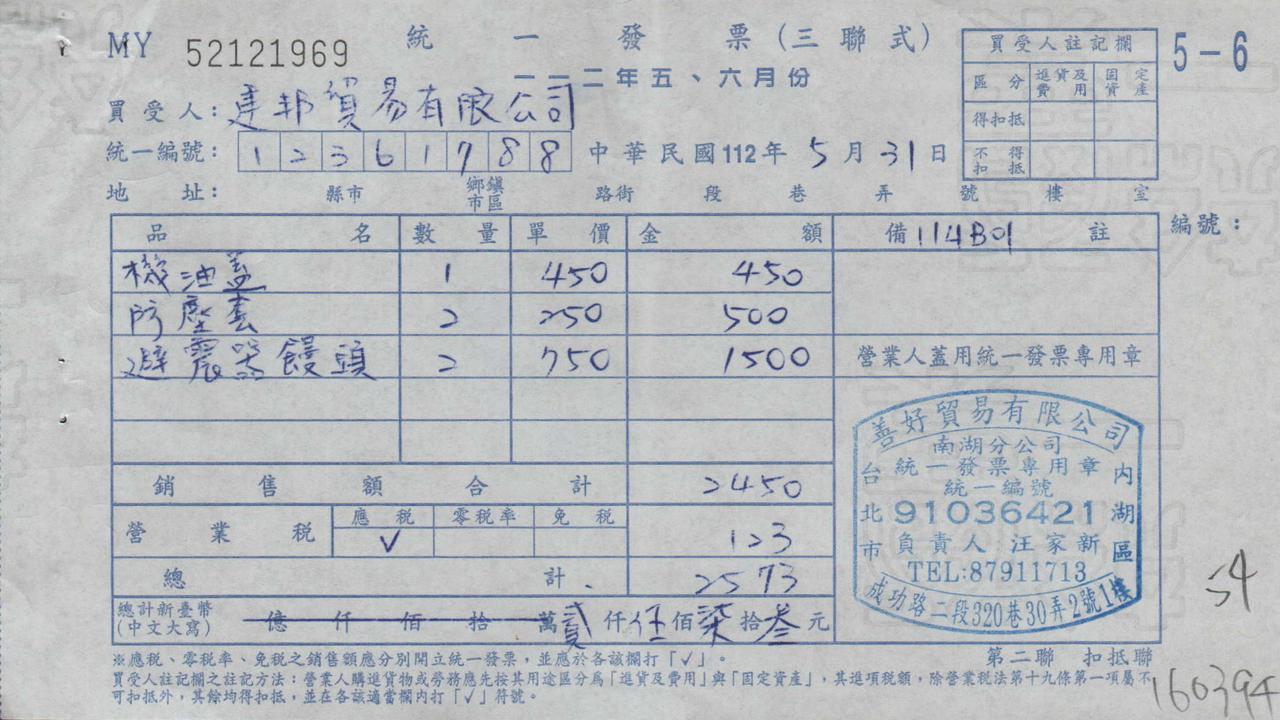 MY 52121969 統一發票(三聯式) 5-6
一一二年五、六月份
買受人註記欄
區分 進貨及費用 固定資產
得扣抵
不得扣抵
買受人:建邦貿易有限公司
統一編號: 12361788 中華民國112年5月31日
地址: 縣市 鄉鎮市區 路街 段 巷 弄 號 樓 室
品名 數量 單價 金額 備註 114B01 編號:
機油蓋 1 450 450
防塵套 2 250 500
避震器饅頭 2 750 1500
營業人蓋用統一發票專用章
銷售額合計 2450
營業稅 應稅 零稅率 免稅
√ 123
總計 2573
總計新臺幣(中文大寫) 億仟佰拾萬貳仟伍佰柒拾叁元
善好貿易有限公司
南湖分公司
統一發票專用章
統一編號
91036421
負責人 汪家新
TEL:87911713
台北市 內湖區
成功路二段320巷30弄2號1樓
54
※應稅、零稅率、免稅之銷售額應分別開立統一發票,並應於各該欄打「√」。
第二聯 扣抵聯
買受人註記欄之註記方法:營業人購進貨物或勞務應先按其用途區分為「進貨及費用」與「固定資產」,其進項稅額,除營業稅法第十九條第一項屬不
可扣抵外,其餘均得扣抵,並在各該適當欄內打「√」符號。
160394